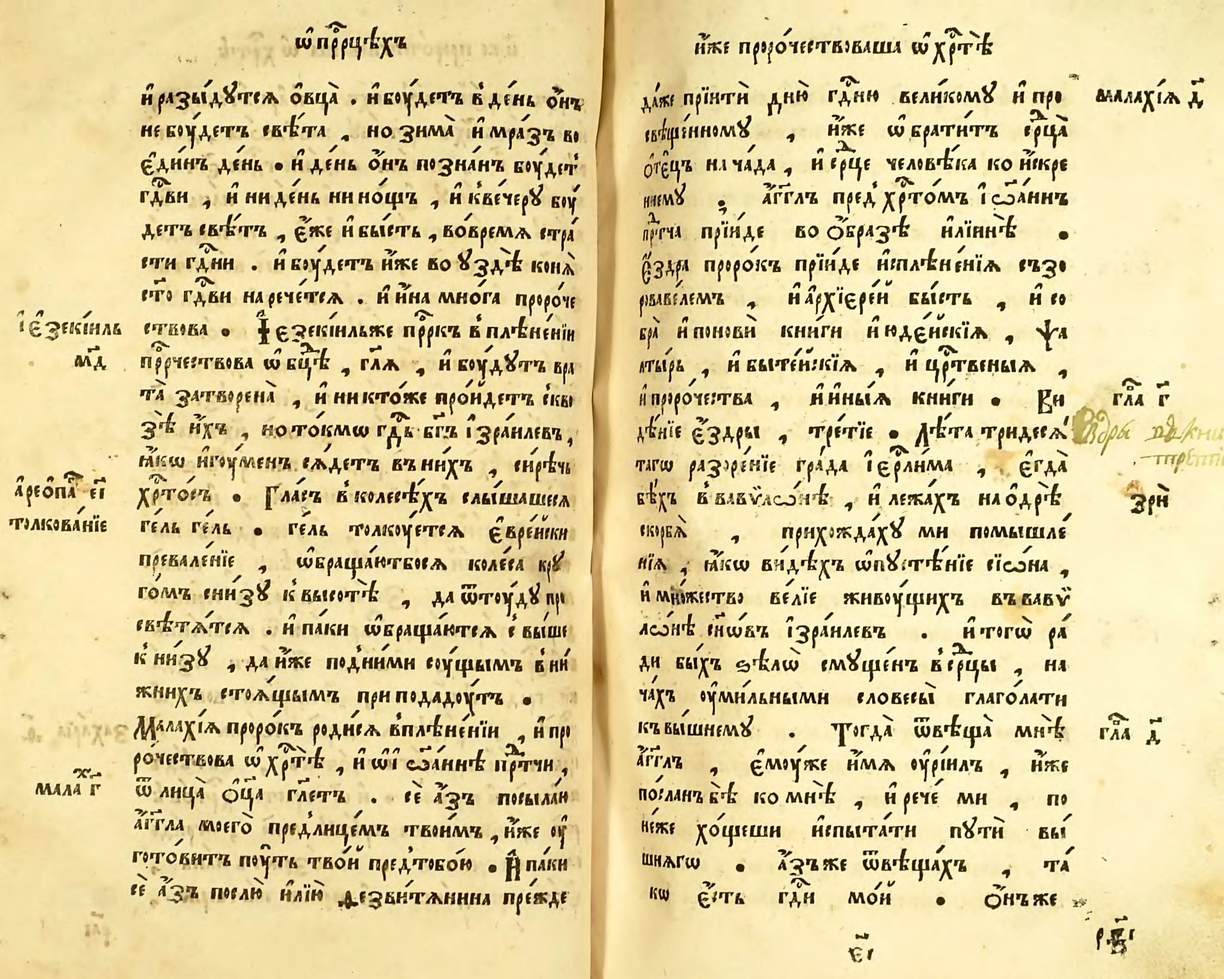 ѡ҆ прⷪ҇рцѣхъ
и҆ разы́дутсѧ ѻ҆вца̀ . и҆ боу́детъ в де́нь ѻ҆́нъ
не боу́детъ свѣ́та , но зима̀ и҆ мра́зъ во
є҆ди́нъ де́нь . и҆ де́нь ѻ҆́нъ позна́нъ боу́детъ
гдⷭ҇ви , и҆ ни де́нь ни но́щъ , и҆ к ве́черꙋ боу́
детъ свѣ́тъ , є҆́же и҆ бы́сть , во вре́мѧ стра́
сти гдⷭ҇ни . и҆ боу́детъ и҆́же во ᲂу҆здѣ̀ конѧ̀
ст҃о гдⷭ҇ви нарече́тсѧ . и҆ и҆́на мно́га проро́че
і҆є҆зекі́иль
м҃д
ствова . І҆езекі́илъже прⷪ҇ркъ в плѣне́нїи
прⷪ҇рчествова ѡ҆ бцⷣѣ , гл҃ѧ , и҆ боу́дꙋтъ вра
та̀ затворена̀ , и҆ никто́же про́йдетъ сквѡ
зѣ̀ и҆́хъ , но то́кмѡ гдⷭ҇ь бг҃ъ і҆зра́илевъ ,
ꙗ҆́кѡ и҆гоу́менъ сѧ́детъ въ ни́хъ , си́рѣчь
а҆реопа́г є҃і
толкова́нїе
хрⷭ҇то́съ . Гла́съ в колесѣ́хъ слы́шашесѧ
ге́ль ге́ль . ге́ль толкоу́етсѧ є҆вре́йски
превале́нїе , ѡ҆браща́ютбосѧ коле́са крꙋ́
го́мъ сни́зꙋ к высотѣ̀ , да ѿтоу́дꙋ про
свѣтѧ́тсѧ . и҆ па́ки ѡ҆браща́ютсѧ с вы́ше
к ни́зꙋ , да и҆́же под ни́ми соу́щымъ в ни́
жнихъ стоѧ́щымъ приподадоу́тъ .
Мала́хїѧ проро́къ роди́сѧ в плѣне́нїи , и҆ про
ро́чествова ѡ҆ хрⷭ҇тѣ̀ , и҆ ѡ҆ і҆ѡа́ннѣ прⷣтчи ,
мала́х г҃
ѿ лица̀ ѻ҆ц҃а̀ гл҃етъ . сѐ а҆́зъ посыла́ю
а҆́гг҃ла моего̀ пред лице́мъ твои́мъ , и҆́же ᲂу҆
гото́витъ поу́ть тво́й пред тобо́ю . И҆ па́ки
сѐ а҆́зъ послю̀ и҆лїю̀ ѳезвитѧ́нина пре́жде
и҆́же проро́чествоваша ѡ҆ хрⷭ҇тѣ̀
да́же прїитѝ дню̀ гдⷭ҇ню вели́комꙋ и҆ про
мала́хїѧ д҃
свѣще́нномꙋ , и҆́же ѡ҆брати́тъ срⷣца̀
ѻ҆те́цъ на ча́да , и҆ срⷣце человѣ́ка ко и҆́скре
ннемꙋ . а҆́гг҃лъ пред хрⷭ҇то́мъ і҆ѡа́ннъ
прⷣтча прїи́де во ѻ҆́бразѣ и҆лїинѣ̀ .
Є҆́здра проро́къ прїи́де и҆с плѣне́нїѧ съ зо
рова́велемъ , и҆ а҆рхїере́й бы́сть , и҆ со
бра̀ и҆ поновѝ кни́ги и҆ю҆де́йскїѧ , Ѱа
лты́рь , и҆ быте́йскїѧ , и҆ црⷭ҇твеныѧ ,
и҆ проро́чества , и҆ и҆ны́ѧ кни́ги . Ви
гла́ г҃
дѣ́нїе є҆́здры , тре́тїе . Лѣ́та тридесѧ́
тагѡ разоре́нїе гра́да і҆ерⷭ҇ли́ма , є҆гда̀
бѣ́хъ в вавѷлѡ́нѣ , и҆ лежа́хъ на ѻ҆дрѣ̀
зрѝ
скорбѧ̀ , прихожда́хꙋ ми помышле́
нїѧ , ꙗ҆́кѡ ви́дѣхъ ѡ҆пꙋстѣ́нїе сїѡ́на ,
и҆ мно́жество ве́лїе живоу́щихъ въ вавѷ
лѡ́нѣ сн҃ѡ́въ і҆зра́илевъ . и҆ тогѡ̀ ра́
ди бы́хъ ѕѣлѡ̀ смꙋще́нъ в срⷣцы , на
ча́хъ ᲂу҆ми́льными словесы̀ глаго́лати
къ вы́шнемꙋ . Тогда̀ ѿвѣща̀ мнѣ̀
гла́ д҃
а҆́гг҃лъ , є҆моу́же и҆́мѧ ᲂу҆рїи́лъ , и҆́же
по́сланъ бѣ̀ ко мнѣ̀ , и҆ рече́ ми , по
не́же хо́щеши и҆спыта́ти пꙋтѝ вы́
шнѧгѡ . а҆́зъже ѿвѣща́хъ , та́
кѡ є҆́сть гдⷭ҇и мо́й . ѻ҆́нъже
є҃і